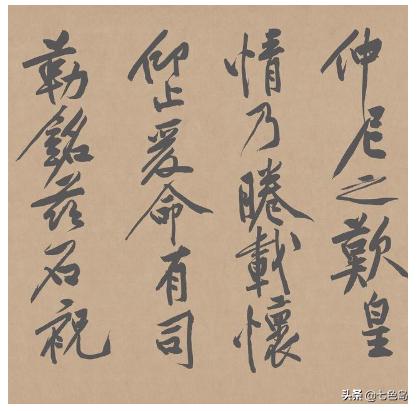 仲尼之歎皇
情乃睠載懷
仰止爰命有司
勒銘茲石祝
头条 @七色岛